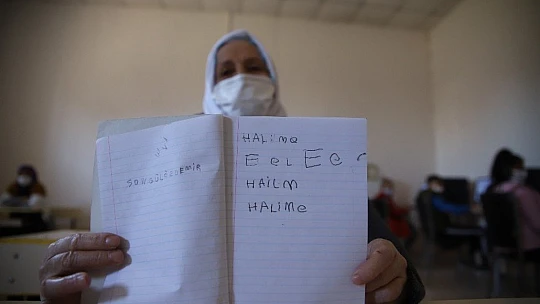 SONGÜLEZDEMİR
HALİMe
E e L E e
HAİLM
HALİMe